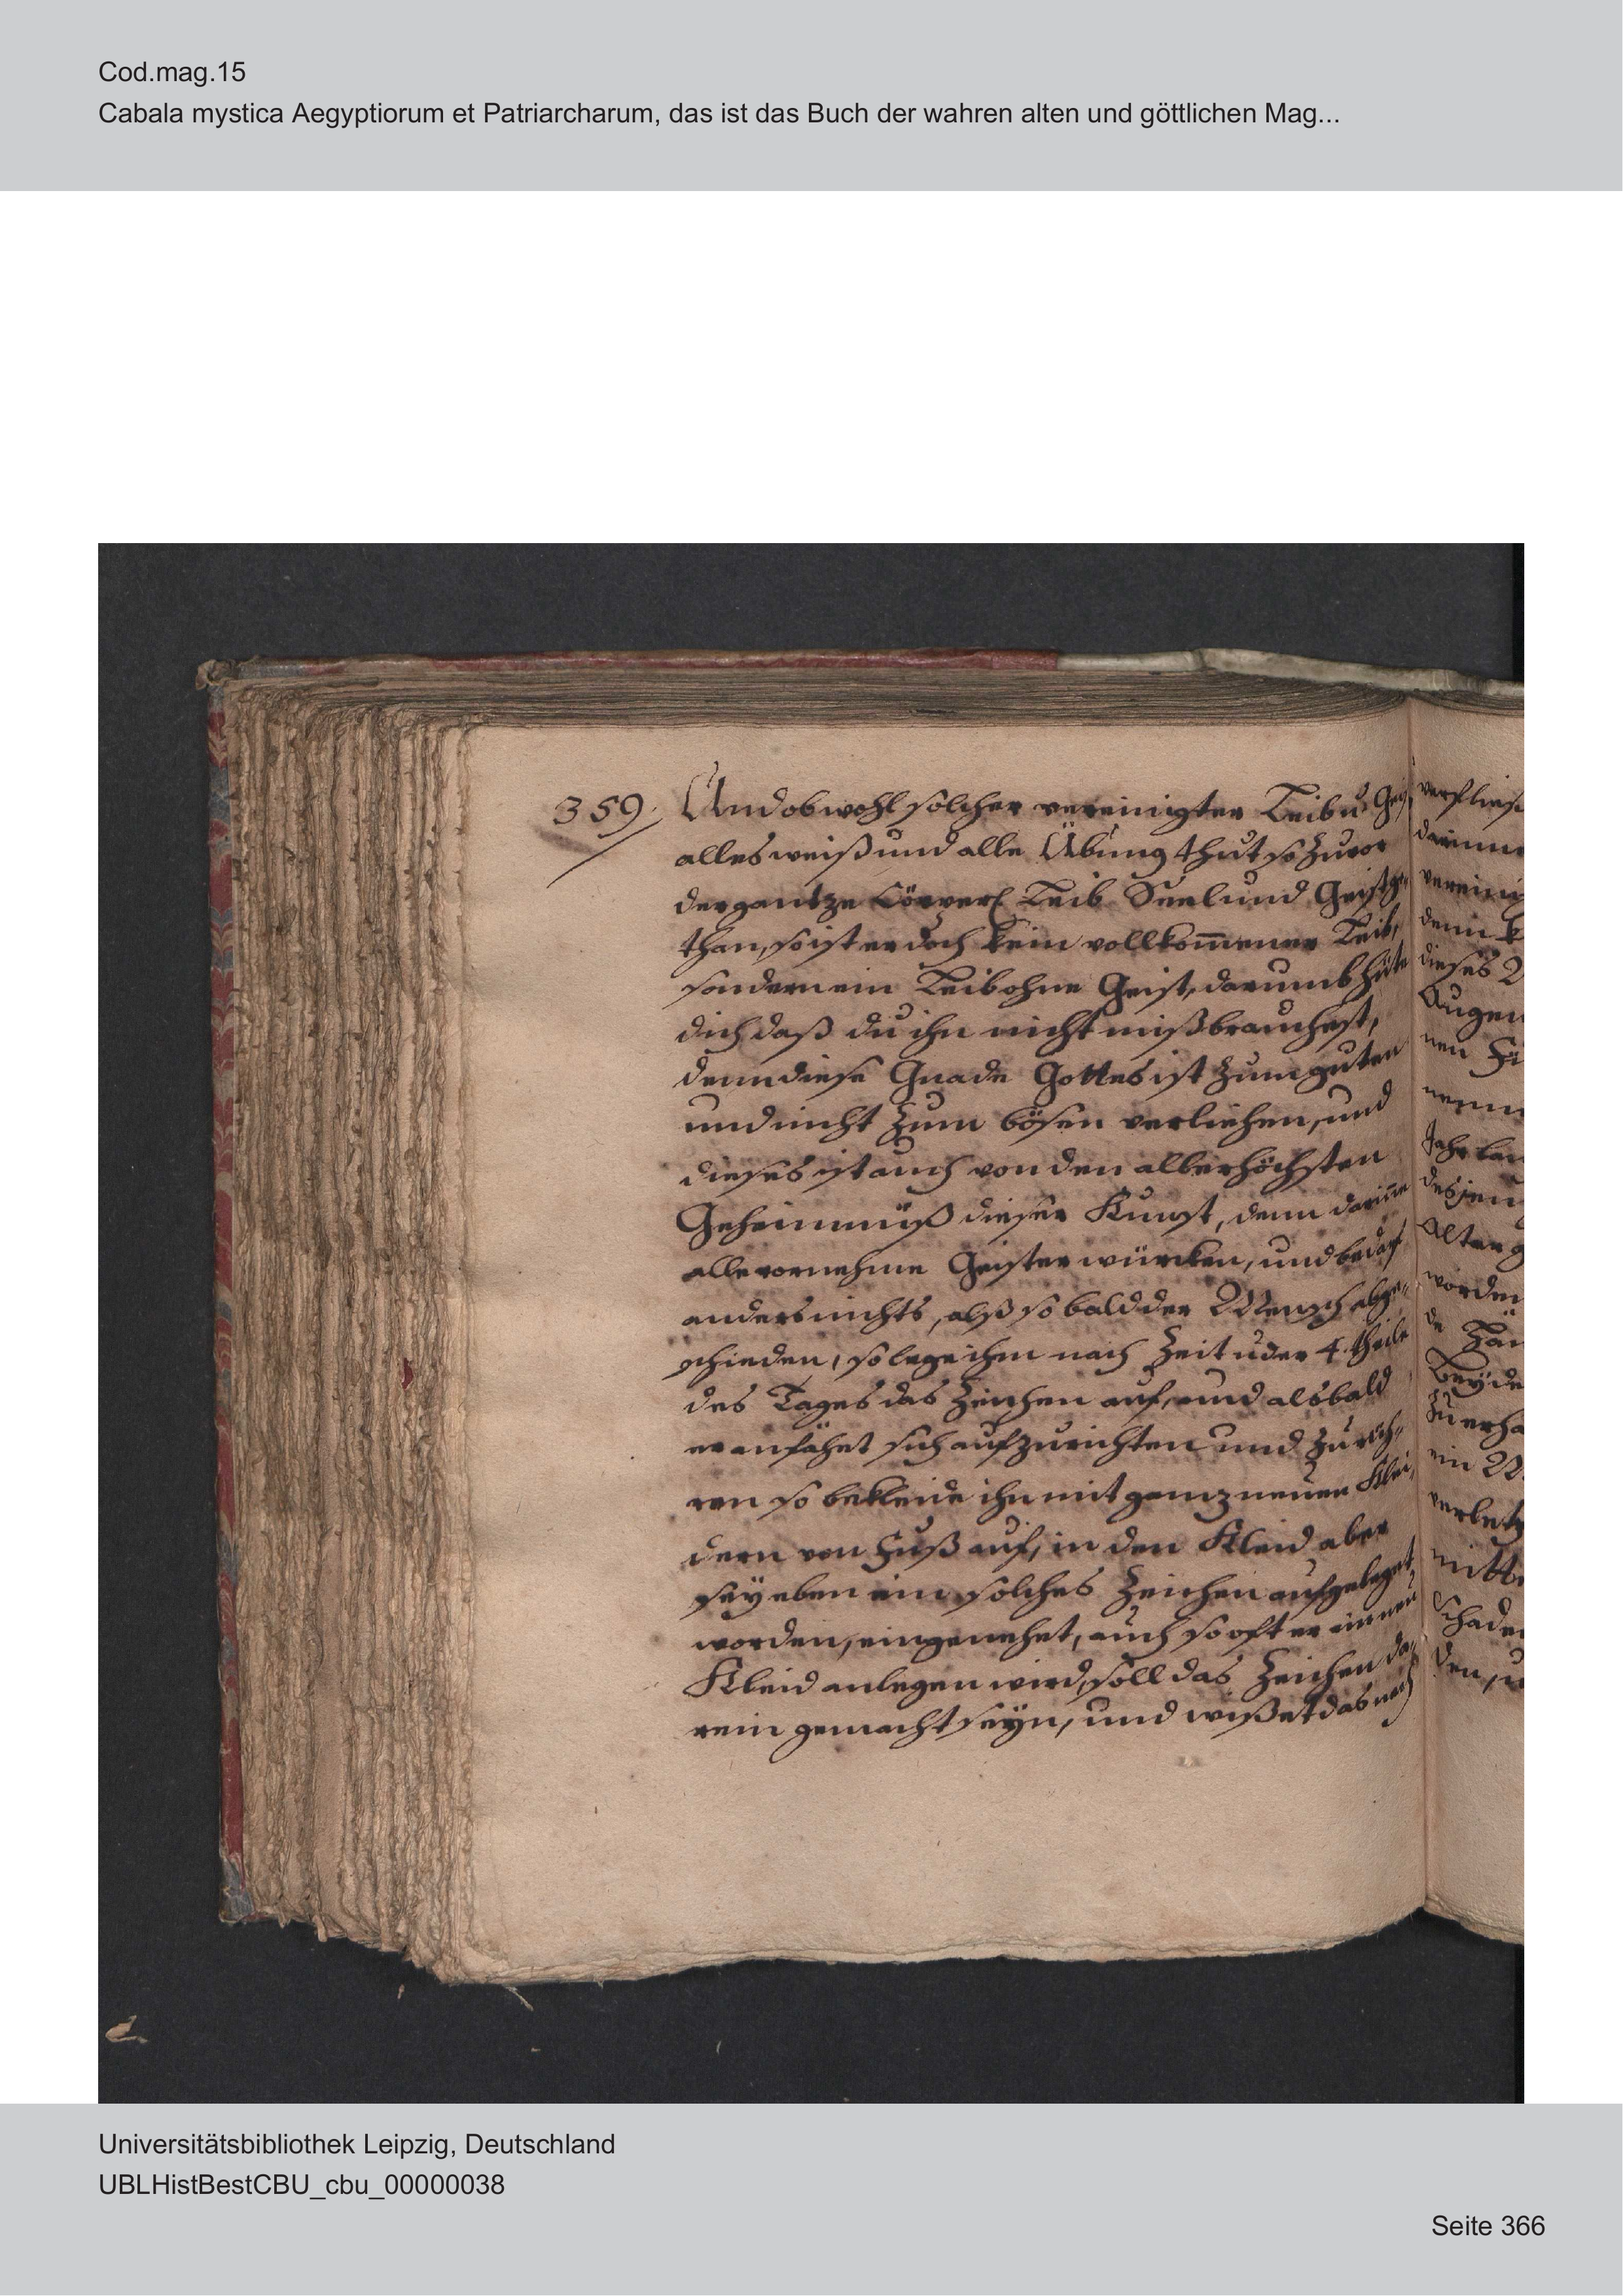 Cod.mag.15
Cabala mystica Aegyptiorum et Patriarcharum, das ist das Buch der wahren alten und göttlichen Mag...
359. Und ob wohl solcher vereinigter Leib u. Gei
alles weiß und alle Übung thut so zuvor
der gantze Cörperl Leib Seel und Geist ge-
than, so ist er doch kein vollkom̃ener Leib,
sondern ein Leib ohne Geist, darumb hüte
dich daß du ihn nicht mißbrauchest,
denn diese Gnade Gottes ist zum guten
und nicht zum bösen verliehen, und
dieses ist auch von den allerhöchsten
Geheimnüß dieser Kunst, denn darin̄e
alle vornehme Geister würcken, und bedarf
anders nichts, alß so bald der Mensch abge-
schieden, so lege ihm nach Zeit u der 4. theile
des Tages das Zeichen auf, und alsbald
er anfähet sich aufzurichten und zu rüh-
ren so bekleide ihn mit ganz neuen Klei,
dern von Fuß auf, in den Kleid aber
sey eben ein solches Zeichen aufgeleget
worden, eingenehet, auch so oft er ein neu
Kleid anlegen wird, soll das Zeichen da-
rein gemacht seyn, und wißet das nach
verfließ
darinne
vereinig
denn k
dieses
Augen
nen
Jahr lan
desjen
Alter g
worden
de Zän
Beyde
zu erha
ein
verletz
mitte
Schaden
den, u
Universitätsbibliothek Leipzig, Deutschland
UBLHistBestCBU_cbu_00000038
Seite 366